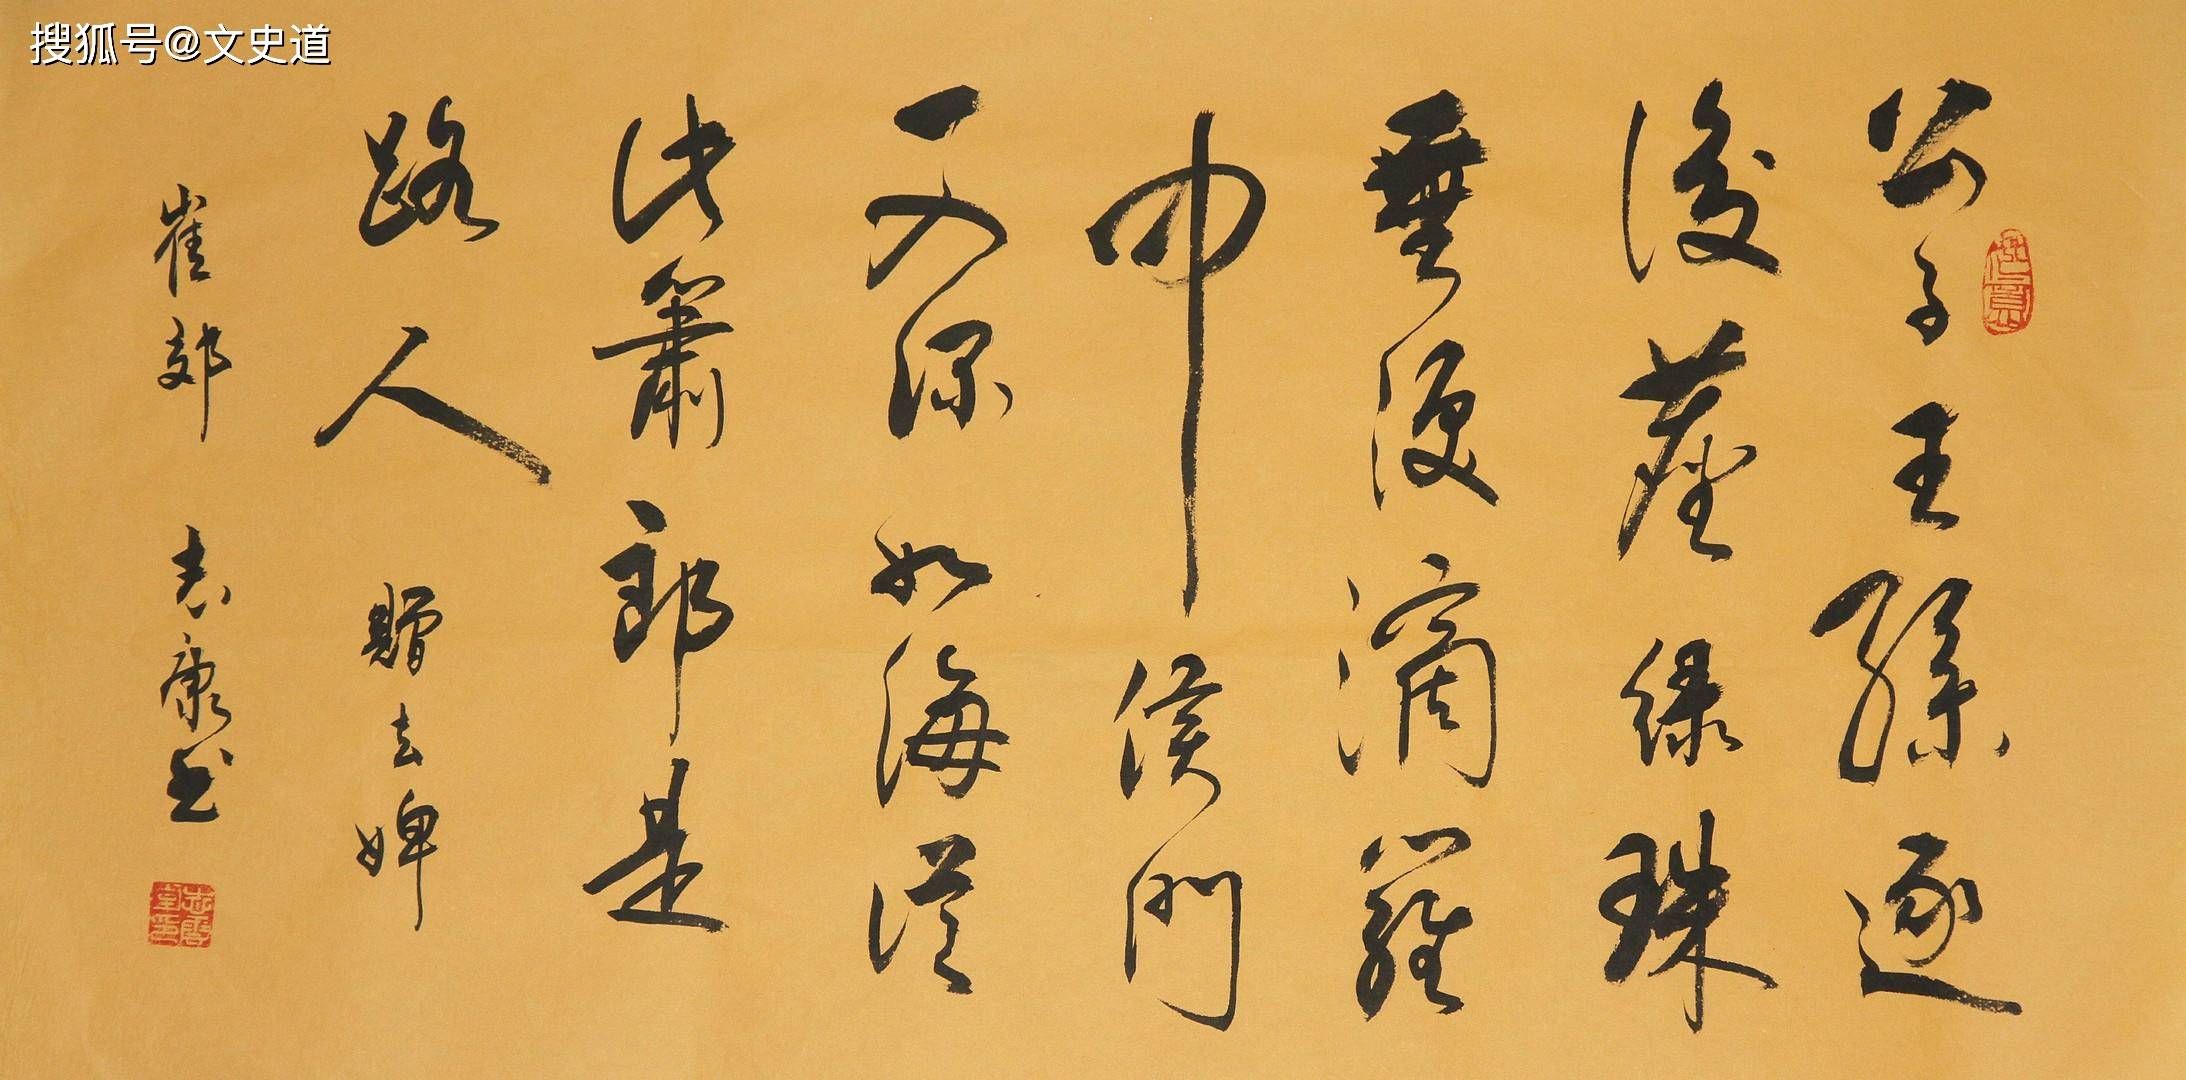 搜狐号@文史道
公子王孫逐
後塵綠珠
垂淚滴羅
巾侯門
一入深如海從
此蕭郎是
路人 贈去婢
崔郊 志康书